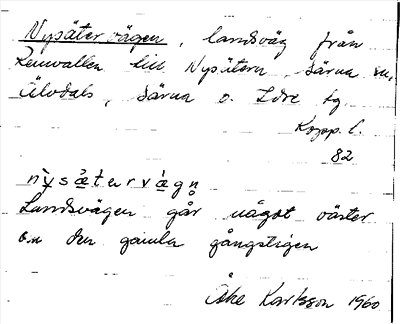 Nysätervägen, landsväg från
Remvallen till Nysätern, Särna sn,
Älvdals, Särna o. Idre tg
Kopp. l.
82
nỳsǣtərvǣgn̥
Landsvägen går något väster
om den gamla gångstigen
Åke Karlsson 1960